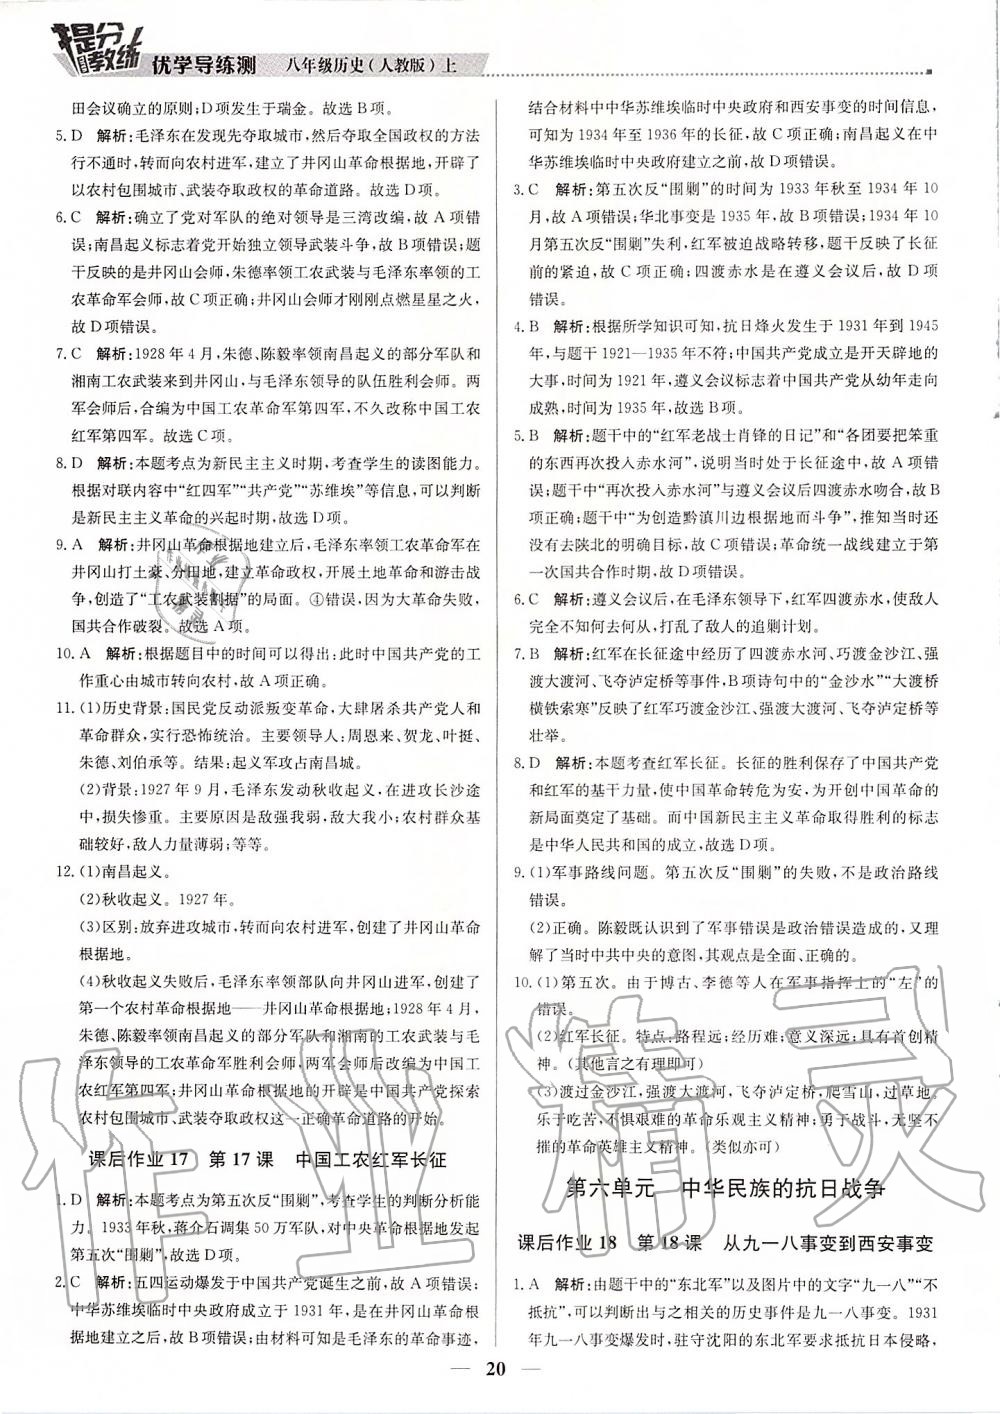 提分教练
优学导练测 八年级历史(人教版)上
田会议确立的原则;D项发生于瑞金。故选B项。
5. D 解析:毛泽东在发现先夺取城市,然后夺取全国政权的方法
行不通时,转而向农村进军,建立了井冈山革命根据地,开辟了
以农村包围城市、武装夺取政权的革命道路。故选D项。
6. C 解析:确立了党对军队的绝对领导是三湾改编,故A项错
误;南昌起义标志着党开始独立领导武装斗争,故B项错误;题
干反映的是井冈山会师,朱德率领工农武装与毛泽东率领的工
农革命军会师,故C项正确;井冈山会师才刚刚点燃星星之火,
故D项错误。
7. C 解析:1928年4月,朱德、陈毅率领南昌起义的部分军队和
湘南工农武装来到井冈山,与毛泽东领导的队伍胜利会师。两
军会师后,合编为中国工农革命军第四军,不久改称中国工农
红军第四军。故选C项。
8. D 解析:本题考点为新民主主义时期,考查学生的读图能力。
根据对联内容中“红四军”“共产党”“苏维埃”等信息,可以判断
是新民主主义革命的兴起时期,故选D项。
9. A 解析:井冈山革命根据地建立后,毛泽东率领工农革命军在
井冈山打土豪、分田地,建立革命政权,开展土地革命和游击战
争,创造了“工农武装割据”的局面。④错误,因为大革命失败,
国共合作破裂。故选A项。
10. A 解析:根据题目中的时间可以得出:此时中国共产党的工
作重心由城市转向农村,故A项正确。
11. (1)历史背景:国民党反动派叛变革命,大肆屠杀共产党人和
革命群众,实行恐怖统治。主要领导人:周恩来、贺龙、叶挺、
朱德、刘伯承等。结果:起义军攻占南昌城。
(2)背景:1927年9月,毛泽东发动秋收起义,在进攻长沙途
中,损失惨重。主要原因是敌强我弱,敌大我小;农村群众基
础较好,敌人力量薄弱;等等。
12. (1)南昌起义。
(2)秋收起义。1927年。
(3)区别:放弃进攻城市,转而向农村进军,建立农村革命根
据地。
(4)秋收起义失败后,毛泽东率领部队向井冈山进军,创建了
第一个农村革命根据地——井冈山革命根据地;1928年4月,
朱德、陈毅率领南昌起义的部分军队和湘南的工农武装与毛
泽东领导的工农革命军胜利会师,两军会师后改编为中国工
农红军第四军;井冈山革命根据地的开辟是中国共产党探索
农村包围城市、武装夺取政权这一正确革命道路的开始。
课后作业17 第17课 中国工农红军长征
1. D 解析:本题考点为第五次反“围剿”,考查学生的判断分析能
力。1933年秋,蒋介石调集50万军队,对中央革命根据地发起
第五次“围剿”。故选D项。
2. C 解析:五四运动爆发于中国共产党诞生之前,故A项错误;
中华苏维埃临时中央政府成立于1931年,是在井冈山革命根
据地建立之后,故B项错误;由材料可知是毛泽东的革命事迹,
结合材料中中华苏维埃临时中央政府和西安事变的时间信息,
可知为1934年至1936年的长征,故C项正确;南昌起义在中
华苏维埃临时中央政府建立之前,故D项错误。
3. C 解析:第五次反“围剿”的时间为1933年秋至1934年10
月,故A项错误;华北事变是1935年,故B项错误;1934年10
月第五次反“围剿”失利,红军被迫战略转移,题干反映了长征
前的紧迫,故C项正确;四渡赤水是在遵义会议后,故D项
错误。
4. B 解析:根据所学知识可知,抗日烽火发生于1931年到1945
年,与题干1921—1935年不符;中国共产党成立是开天辟地的
大事,时间为1921年,遵义会议标志着中国共产党从幼年走向
成熟,时间为1935年,故选B项。
5. B 解析:题干中的“红军老战士肖锋的日记”和“各团要把笨重
的东西再次投入赤水河”,说明当时处于长征途中,故A项错
误;题干中“再次投入赤水河”与遵义会议后四渡赤水吻合,故B
项正确;题干中“为创造黔滇川边根据地而斗争”,推知当时还
没有去陕北的明确目标,故C项错误;革命统一战线建立于第
一次国共合作时期,故D项错误。
6. C 解析:遵义会议后,在毛泽东领导下,红军四渡赤水,使敌人
完全不知何去何从,打乱了敌人的追剿计划。
7. B 解析:红军在长征途中经历了四渡赤水河、巧渡金沙江、强
渡大渡河、飞夺泸定桥等事件,B项诗句中的“金沙水”“大渡桥
横铁索寒”反映了红军巧渡金沙江、强渡大渡河、飞夺泸定桥等
壮举。
8. D 解析:本题考查红军长征。长征的胜利保存了中国共产党
和红军的基干力量,使中国革命转危为安,为开创中国革命的
新局面奠定了基础。而中国新民主主义革命取得胜利的标志
是中华人民共和国的成立,故选D项。
9. (1)军事路线问题。第五次反“围剿”的失败,不是政治路线
错误。
(2)正确。陈毅既认识到了军事错误是政治错误造成的,又理
解了当时中共中央的意图,其观点是全面、正确的。
10. (1)第五次。由于博古、李德等人在军事指挥上的“左”的
错误。
(2)红军长征。特点:路程远;经历难;意义深远;具有首创精
神。(其他言之有理即可)
(3)渡过金沙江,强渡大渡河,飞夺泸定桥,爬雪山,过草地。
乐于吃苦、不惧艰难的革命乐观主义精神;勇于战斗、无坚
不摧的革命英雄主义精神。(类似亦可)
第六单元 中华民族的抗日战争
课后作业18 第18课 从九一八事变到西安事变
1. A 解析:由题干中的“东北军”以及图片中的文字“九一八”“不
抵抗”,可以判断出与之相关的历史事件是九一八事变。1931
年九一八事变爆发时,驻守沈阳的东北军要求抵抗日本侵略,
20
作业精灵